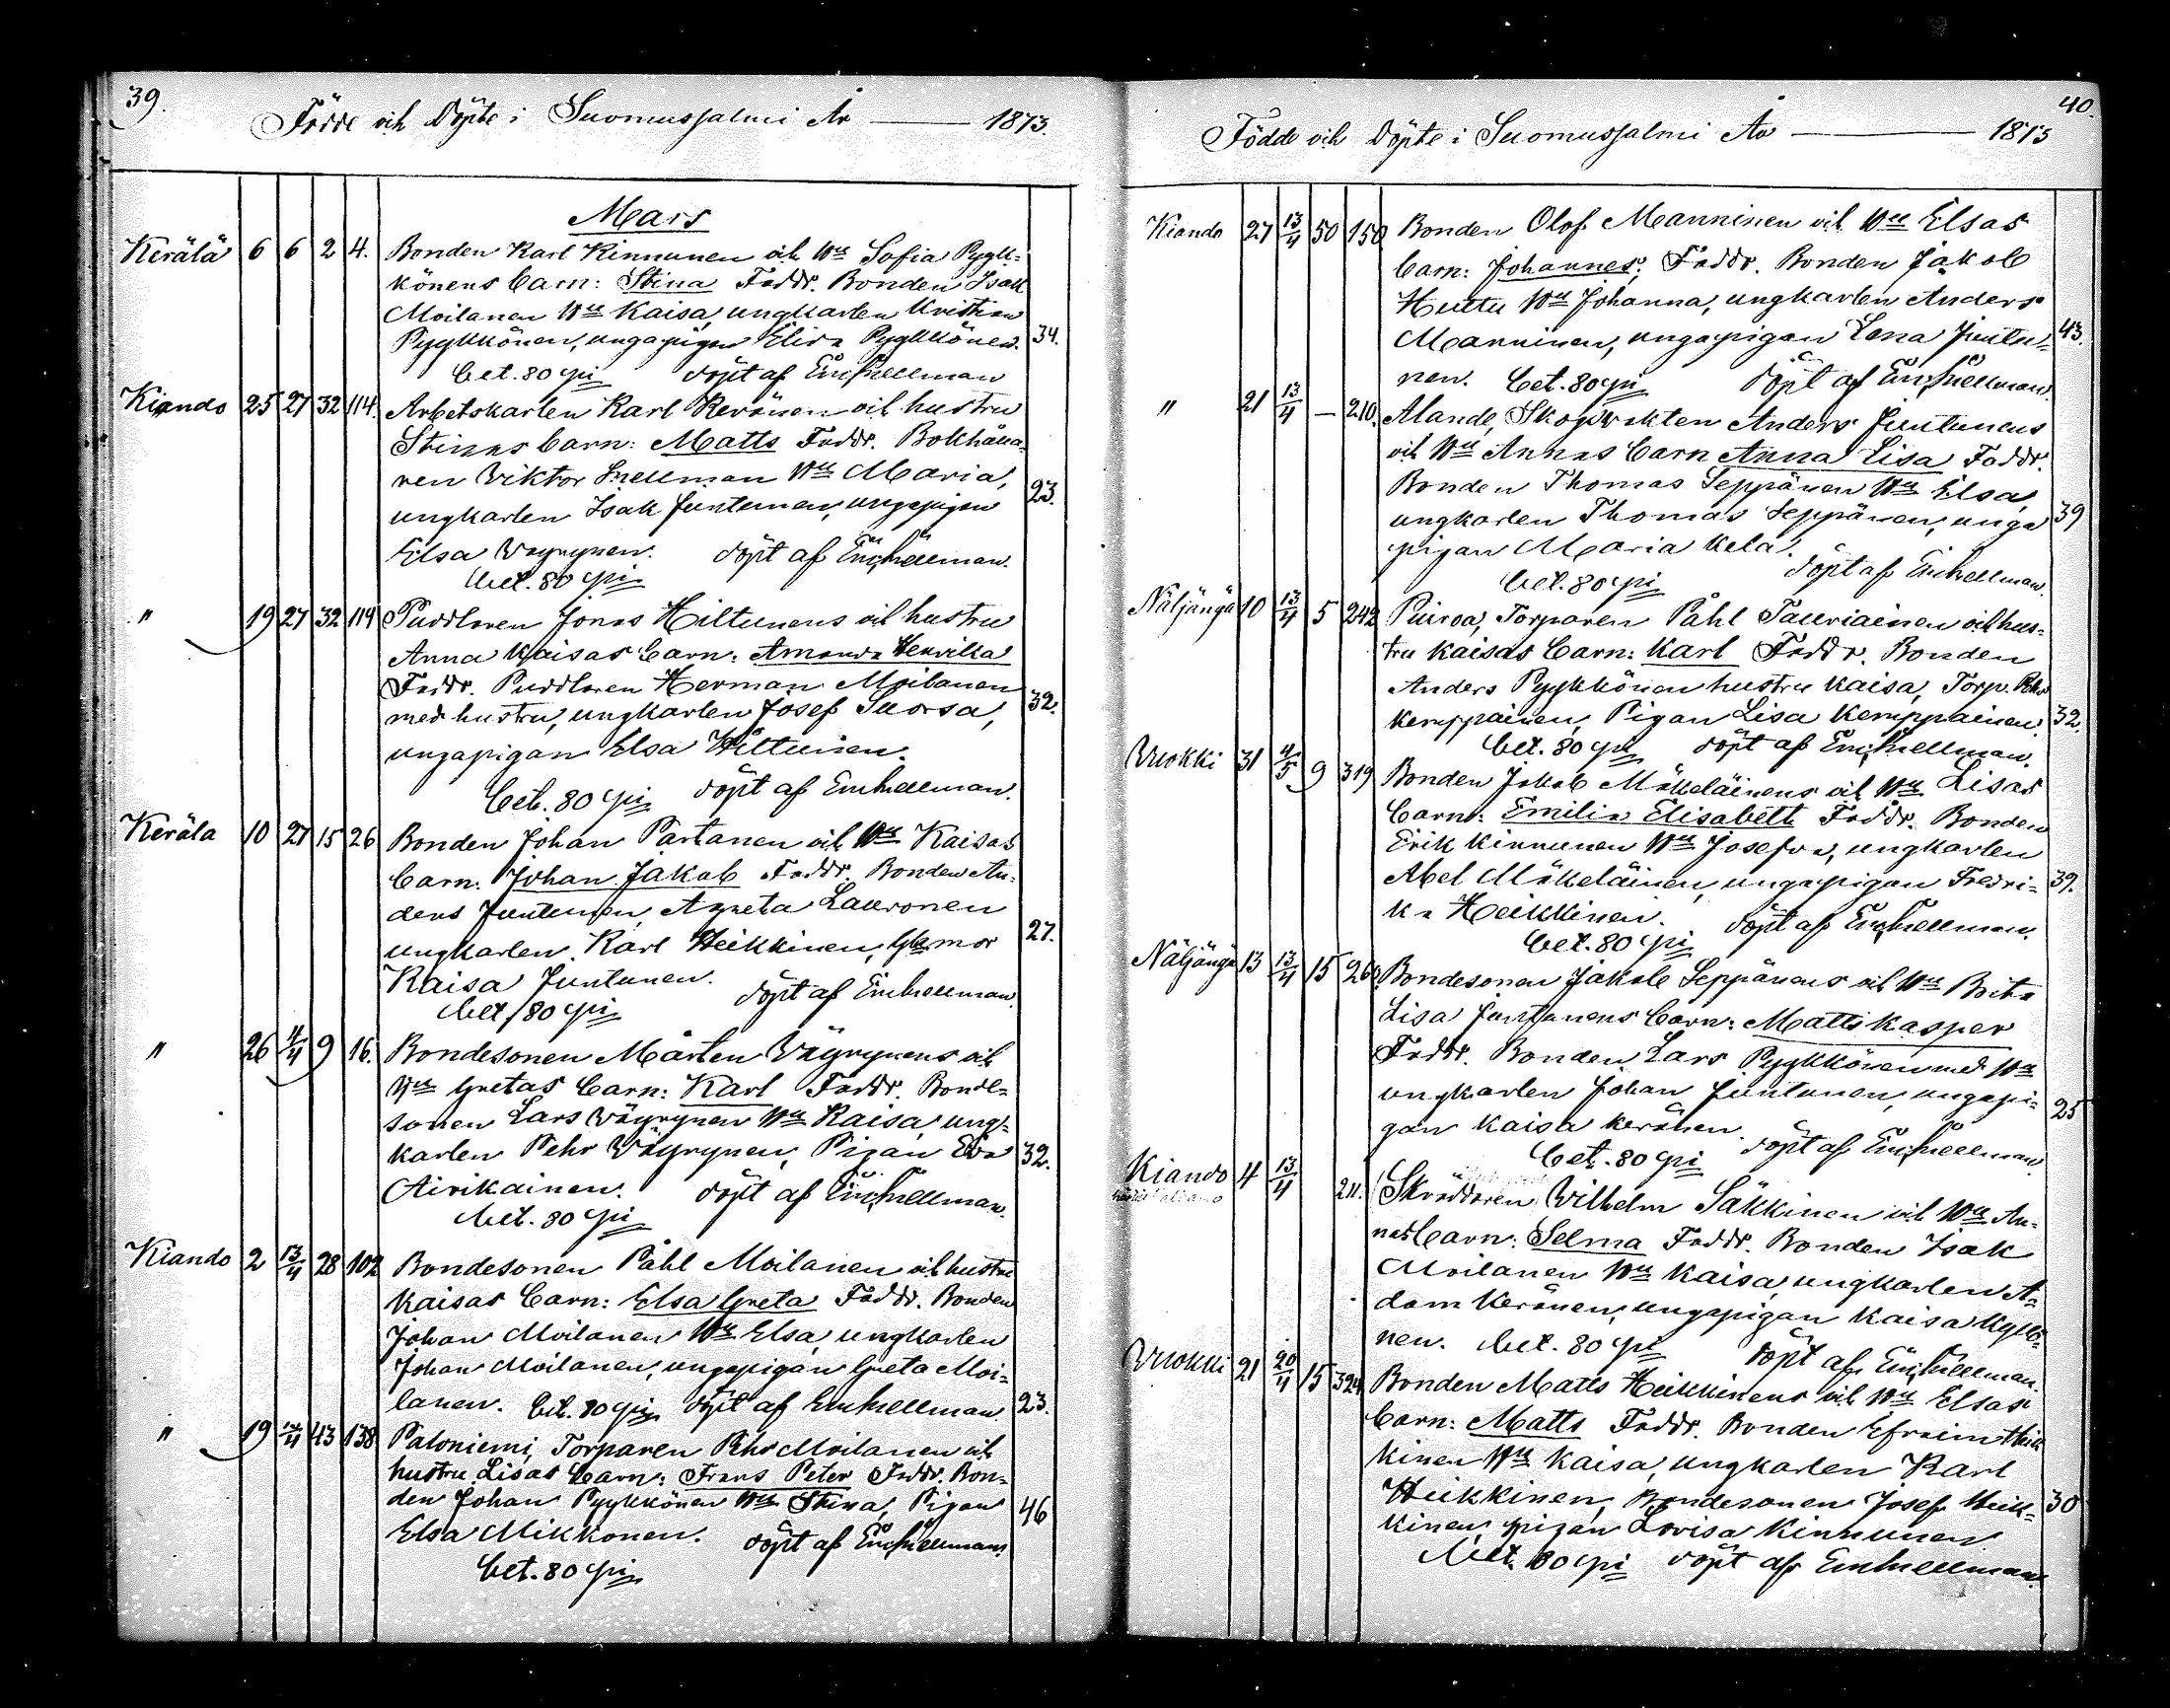 39.
Födde och Döpte i Suomussalmi År — 1873.
Mars
Kerälä 6 6 2 4. Bonden Karl Kinnunen och Hu Sofia Pyyk-
könens barn: Stina Faddr. Bonden Isak
Moilanen Hu Kaisa, ungkarlen Kristian
Pyykkönen, ungapigan Elisa Pyykkönen. 34.
bet. 80 pi döpt af Em Snellman
Kiando 25 27 32 114. Arbetskarlen Karl Keränen och hustru
Stinas barn: Matts Faddr. Bokhålla-
ren Viktor Snellman Hu Maria,
ungkarlen Isak Juntunen, ungapigan 23.
Elsa Väyrynen. döpt af Em Snellman.
bet. 80 pi
" 19 27 32 114 Puddlaren Jonas Hiltunens och hustru
Anna Kaisas barn: Amanda Henrika
Faddr. Puddlaren Herman Moilanen
med hustru, ungkarlen Josef Suorsa, 32.
ungapigan Elsa Hiltunen.
bet. 80 pi döpt af Em Snellman.
Keräla 10 27 15 26 Bonden Johan Partanen och Hu Kaisas
barn: Johan Jakob Faddr. Bonden An-
ders Juntunen, Agneta Lauronen
ungkarlen Karl Heikkinen, Gbmor 27.
Kaisa Juntunen. döpt af Em Snellman.
bet. 80 pi
" 26 4/4 9 16. Bondesonen Mårten Väyrynens och
Hu Gretas barn: Karl Faddr. Bonde-
sonen Lars Väyrynen Hu Kaisa, ung-
karlen Pehr Väyrynen, Pigan Eva 32.
Airikainen. döpt af Em Snellman.
bet. 80 pi
Kiando 2 13/4 28 102 Bondesonen Påhl Moilanen och hustru
Kaisas barn: Elsa Greta Faddr. Bonden
Johan Moilanen Hu Elsa, ungkarlen
Johan Moilanen, ungapigan Greta Moi-
lanen. bet. 80 pi döpt af Em Snellman 23.
" 19 14/4 43 138 Patoniemi, Torparen Pehr Moilanen och
hustru Lisas barn: Frans Peter Faddr. Bon-
den Johan Pyykkönen Hu Stina, Pigan 46
Elsa Mikkonen. döpt af Em Snellman.
bet. 80 pi
40.
Födde och Döpte i Suomussalmi År — 1873
Kiando 27 13/4 50 150 Bonden Olof Manninen och Hu Elsas
barn: Johannes, Faddr. Bonden Jakob
Huttu Hu Johanna, ungkarlen Anders
Manninen, ungapigan Lena Juntu- 43.
nen. bet. 80 pi döpt af Em Snellman.
" 21 13/4 — 210. Alande, Skogvakten Anders Juntunens
och Hu Annas barn Anna Lisa Faddr.
Bonden Thomas Seppänen Hu Elsa,
ungkarlen Thomas Seppänen, unga 39
pigan Maria Kela. döpt af Em Snellman.
bet. 80 pi
Näljängä 10 13/4 5 242 Puiroa, Torparen Påhl Tauriainen och hus-
tru Kaisas barn: Karl Faddr. Bonden
Anders Pyykkönen hustru Kaisa, Torp. Pehr
Kemppainen, Pigan Lisa Kemppainen. 32.
bet. 80 pi döpt af Em Snellman.
Vuokki 31 4/5 9 319 Bonden Jakob Mäkeläinens och Hu Lisas
barn: Emilia Elisabeth Faddr. Bonden
Erik Kinnunen Hu Josefva, ungkarlen
Abel Mäkeläinen, ungapigan Fredri- 39.
ka Heikkinen. döpt af Em Snellman.
bet. 80 pi
Näljängä 13 13/4 15 260 Bondesonen Jakob Seppänens och Hu Brita
Lisa Juntunens barn: Matts Kasper
Faddr. Bonden Lars Pyykkönen med Hu
ungkarlen Johan Juntunen, ungapi- 25
gan Kaisa Keränen. döpt af Em Snellman
bet. 80 pi
Kiando 4 13/4 211. Skräddaren Vilhelm Säkkinen och Hu An-
nas barn: Selma Faddr. Bonden Isak
Moilanen Hu Kaisa, ungkarlen A-
dam Keränen, ungapigan Kaisa Kyllö-
nen. bet. 80 pi döpt af Em Snellman.
Vuokki 21 20/4 15 324 Bonden Matts Heikkinens och Hu Elsas
barn: Matts Faddr. Bonden Efraim Heik
kinen Hu Kaisa, ungkarlen Karl
Heikkinen, Bondesonen Josef Heik- 30
kinen, pigan Lovisa Kinnunen.
bet. 80 pi döpt af Em Snellman.